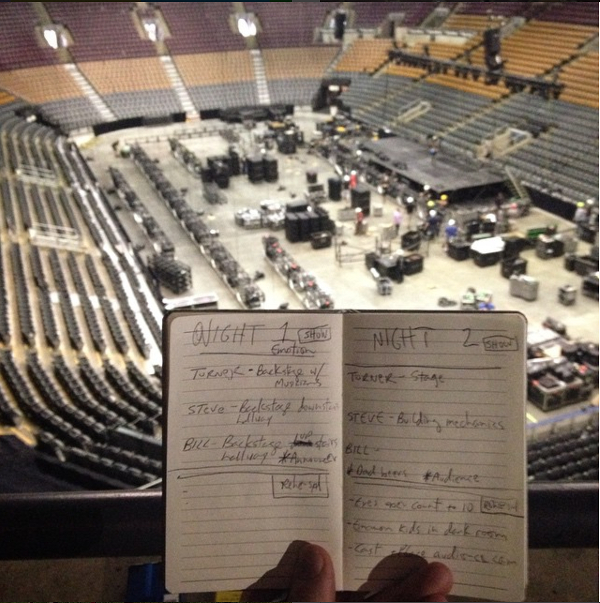 NIGHT 1 SHOW
Emotion
TURNER - Backstage w/
Musicians
STEVE - Backstage downstairs
hallway
BILL - Backstage up stairs
hallway *Announcer
rehearsal
NIGHT 2 SHOW
TURNER - Stage
STEVE - Building mechanics
BILL -
*Audience
- count to 10
- kids in dark room
- audience